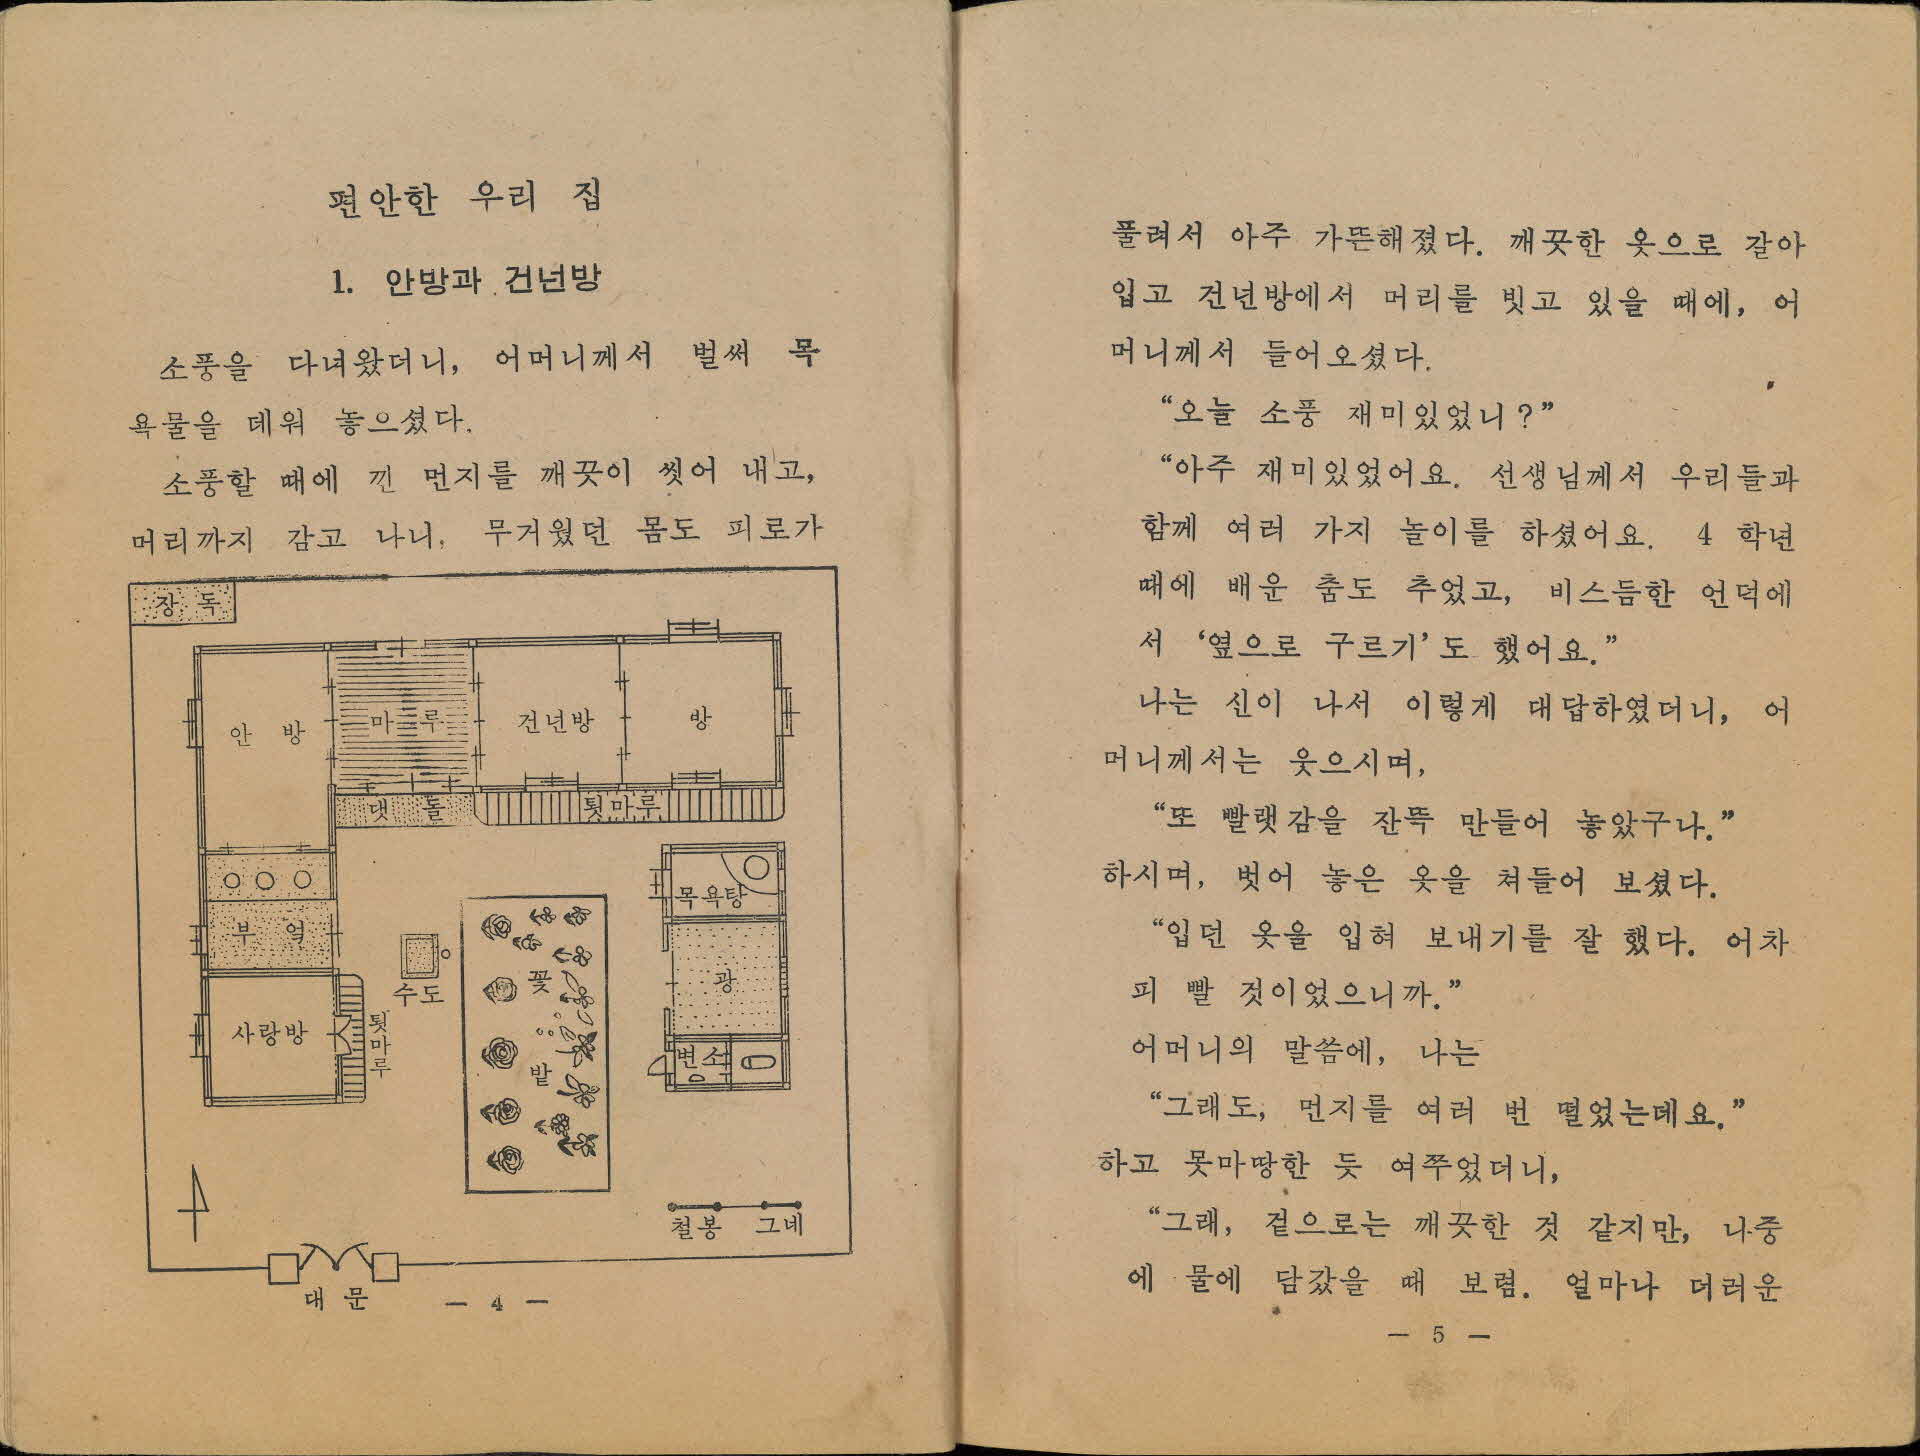 편안한 우리 집
1. 안방과 건넌방
소풍을 다녀왔더니, 어머니께서 벌써 목
욕물을 데워 놓으셨다.
소풍할 때에 낀 먼지를 깨끗이 씻어 내고,
머리까지 감고 나니, 무거웠던 몸도 피로가
장 독
안 방
마 루
건넌방
방
댓 돌
툇마루
목욕탕
부 엌
수도
꽃
밭
광
사랑방
툇마루
변소
철봉 그네
대 문
— 4 —
풀려서 아주 가뜬해졌다. 깨끗한 옷으로 갈아
입고 건넌방에서 머리를 빗고 있을 때에, 어
머니께서 들어오셨다.
“오늘 소풍 재미있었니?”
“아주 재미있었어요. 선생님께서 우리들과
함께 여러 가지 놀이를 하셨어요. 4 학년
때에 배운 춤도 추었고, 비스듬한 언덕에
서 ‘옆으로 구르기’도 했어요.”
나는 신이 나서 이렇게 대답하였더니, 어
머니께서는 웃으시며,
“또 빨랫감을 잔뜩 만들어 놓았구나.”
하시며, 벗어 놓은 옷을 쳐들어 보셨다.
“입던 옷을 입혀 보내기를 잘 했다. 어차
피 빨 것이었으니까.”
어머니의 말씀에, 나는
“그래도, 먼지를 여러 번 떨었는데요.”
하고 못마땅한 듯 여쭈었더니,
“그래, 겉으로는 깨끗한 것 같지만, 나중
에 물에 담갔을 때 보렴. 얼마나 더러운
— 5 —